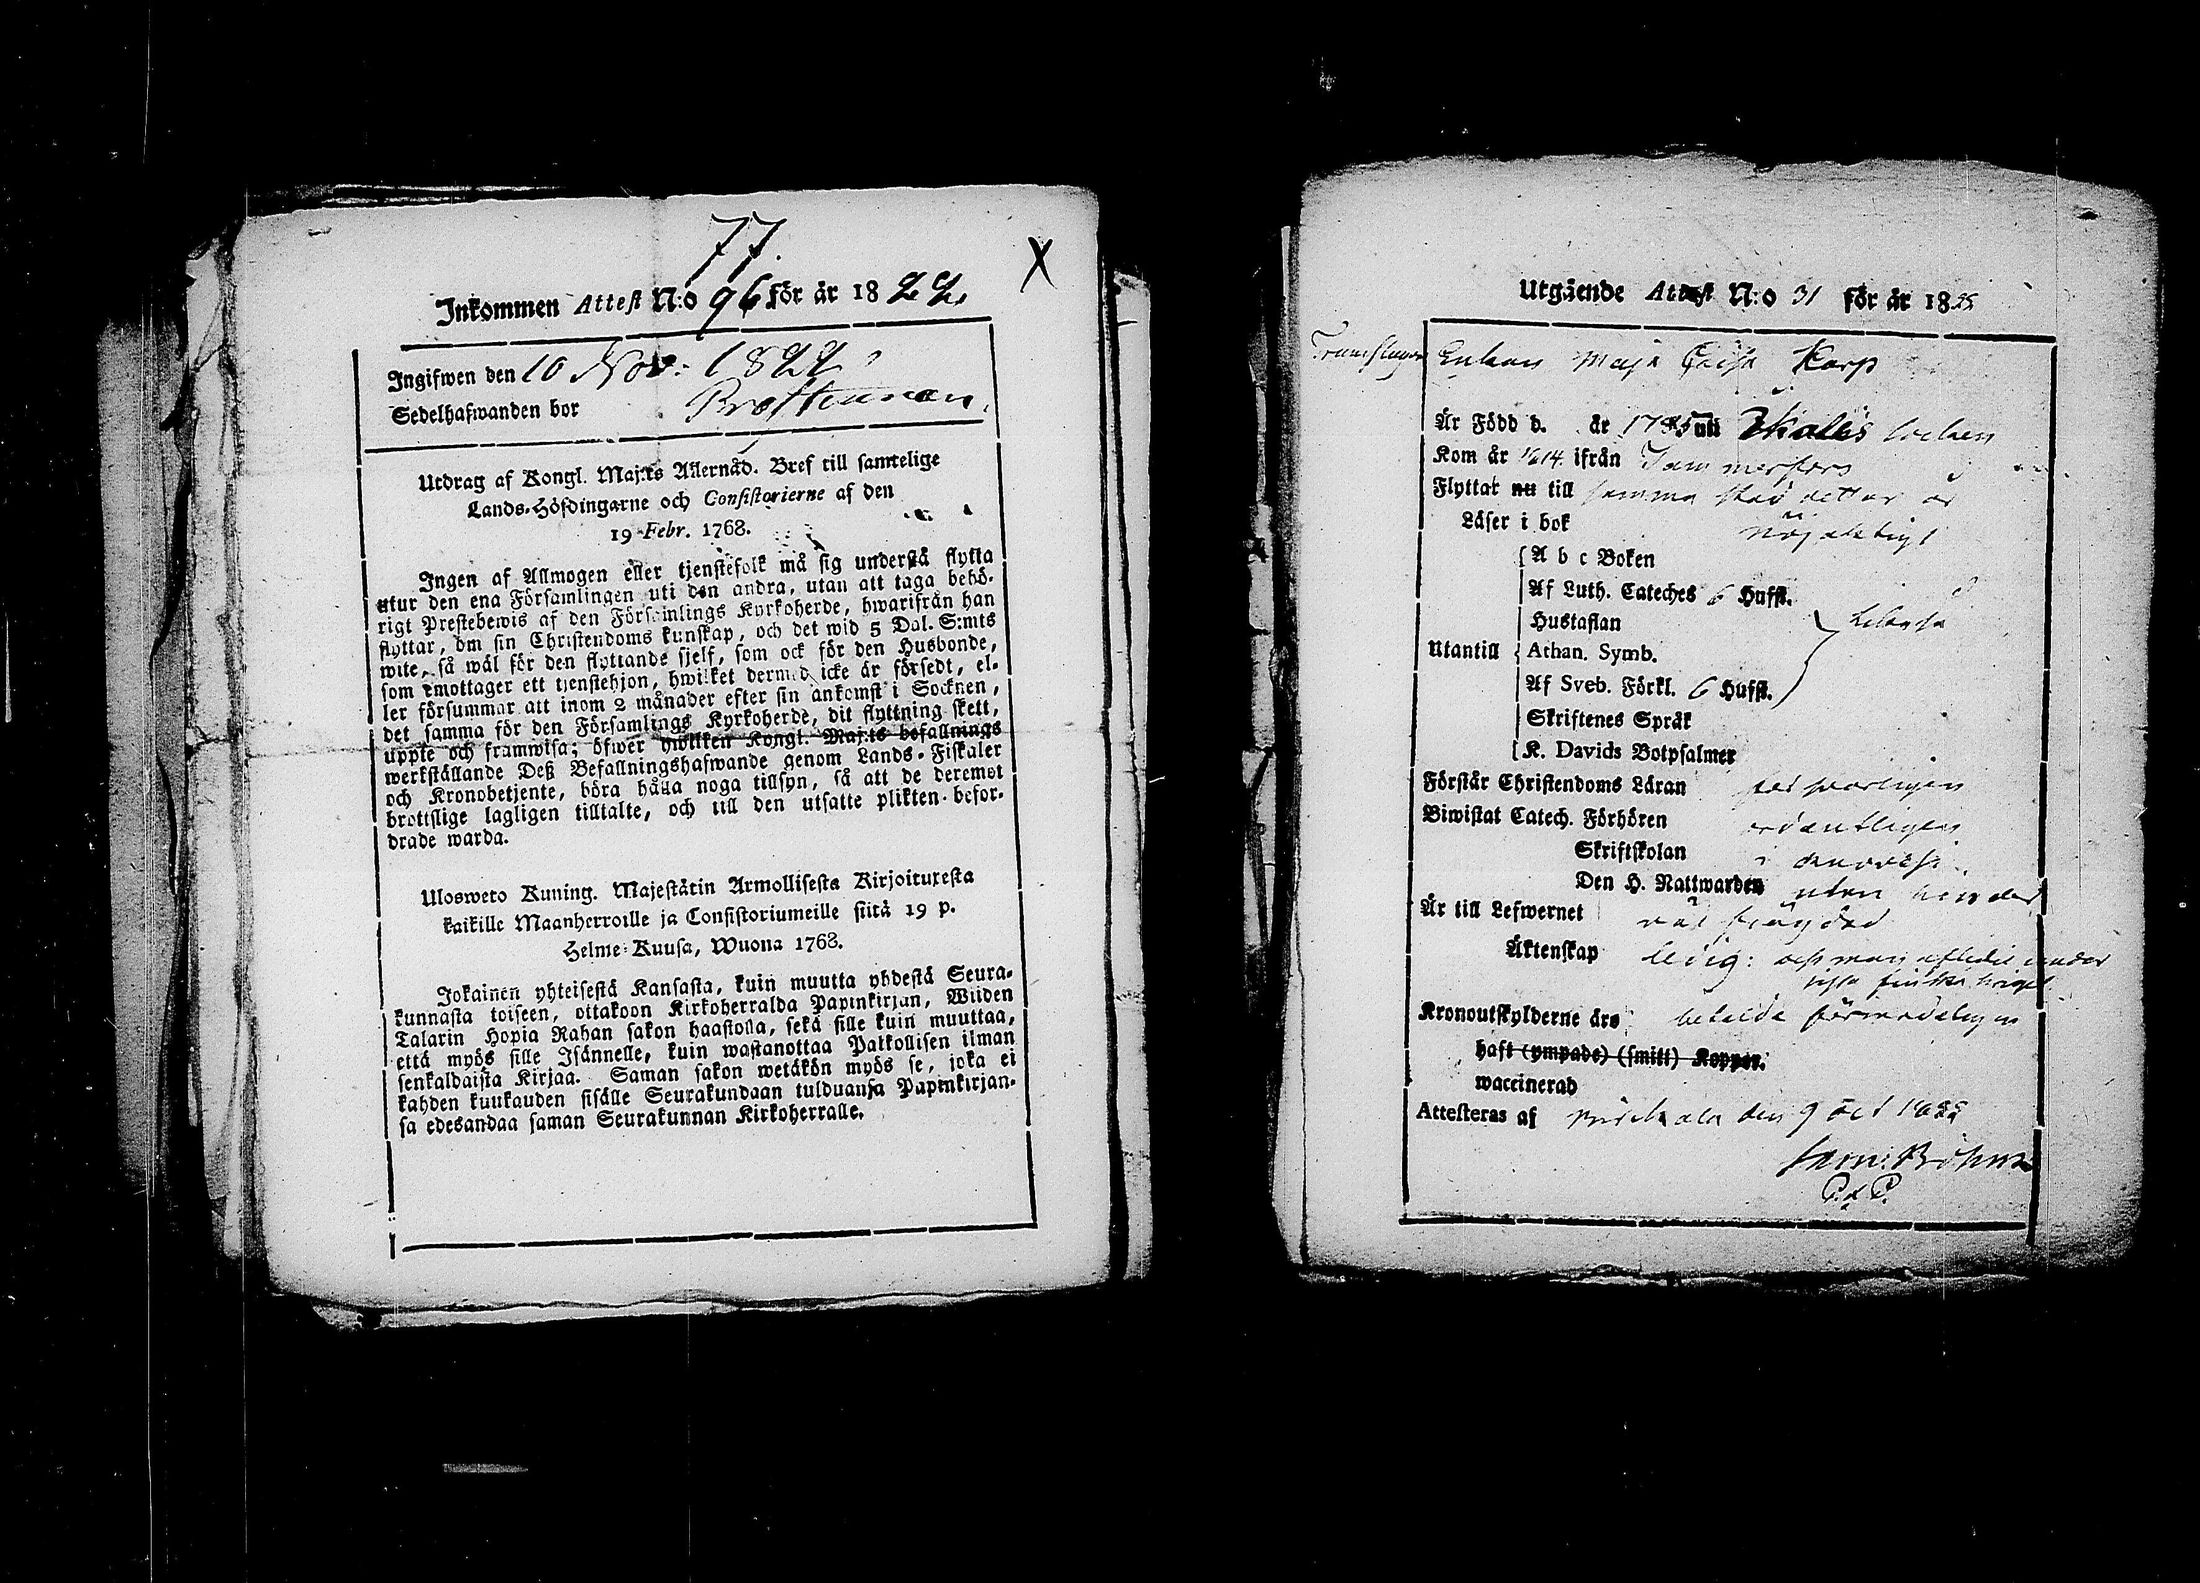 77.
X
Inkommen Attest N:o 96 för år 1822.
Ingifwen den 10 Nov: 1822
Sedelhafwanden bor
Utdrag af Kongl. Maj:ts Allernåd. Bref till samtelige
Lands-Höfdingarne och Consistorierne af den
19 Febr. 1768.
Ingen af Allmogen eller tjenstefolk må sig understå flytta
utur den ena Församlingen uti den andra, utan att taga behö-
rigt Prestebewis af den Församlings Kyrkoherde, hwarifrån han
flyttar, om sin Christendoms kunskap, och det wid 5 Dal. S:mts
wite, så wäl för den flyttande sjelf, som ock för den Husbonde,
som emottager ett tjenstehjon, hwilket dermed icke är försedt, el-
ler försummar att inom 2 månader efter sin ankomst i Socknen,
det samma för den Församlings Kyrkoherde, dit flyttning skett,
uppte och framwisa; öfwer hwilken Kongl. Maj:ts befallnings
werkställande Deß Befallningshafwande genom Lands-Fiskaler
och Kronobetjente, böra hålla noga tillsyn, så att de deremot
brottslige lagligen tilltalte, och till den utsatte plikten befor-
drade warda.
Ulosweto Kuning. Majestätin Armollisesta Kirjoituxesta
kaikille Maanherroille ja Consistoriumeille siitä 19 p.
Helme-Kuusa, Wuona 1768.
Jokainen yhteisestä Kansasta, kuin muutta yhdestä Seura-
kunnasta toiseen, ottakoon Kirkoherralda Papinkirjan, Wiiden
Talarin Hopia Rahan sakon haastolla, sekä sille kuin muuttaa,
että myös sille Isännelle, kuin wastanottaa Palkollisen ilman
senkaldaista Kirjaa. Saman sakon wetäkön myös se, joka ei
kahden kuukauden sisälle Seurakundaan tulduansa Papinkirjan-
sa edesandaa saman Seurakunnan Kirkoherralle.
Utgående Attest N:o 31 för år 18
Enkan Maja Caisa Karp
Är Född d. år uti
Kom år 1814 ifrån Tammerfors
Flyttar nu till samma stad detta år
Läser i bok nöjaktigt
Utantill
A b c Boken
Af Luth. Cateches 6 Hufst.
Hustaflan
Athan. Symb.
Af Sveb. Förkl. 6 Hufst.
Skriftenes Språk
K. Davids Botpsalmer
Förstår Christendoms Läran
Biwistat Catech. Förhören ordentligen
Skriftskolan
Den H. Nattwarden utan hinder
Är till Lefwernet väl frägdad
Äktenskap ledig: under
sista finska kriget
Kronoutskylderne äro betalde förmodeligen
haft (ympade) (smitt) Koppor.
waccinerad
Attesteras af den 9 Oct
P. d. P.